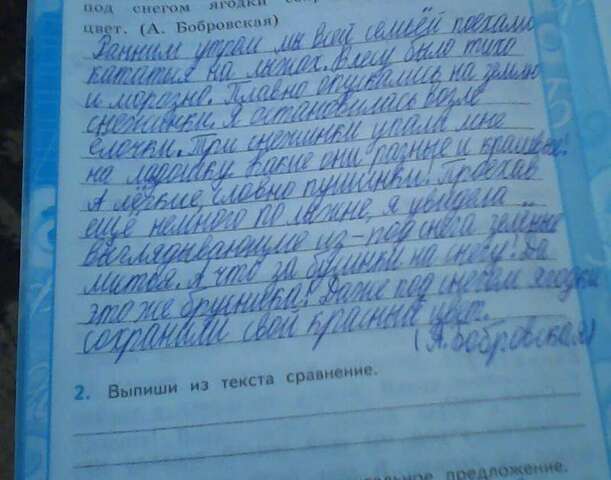 под снегом ягодки сохр
цвет. (А. Бобровская)
Ранним утром мы всей семьёй поехали
кататся на лыжах. В лесу было тихо
и морозно. Плавно опускались на землю
снежинки. Я остановилась возле
ёлочки. Три снежинки упали мне
на ладошку. Какие они разные и красивые!
А лёгкие, словно пушинки! Проехав
ещё немного по лыжне, я увидела
выглядывающие из-под снега зелёные
листоя. А что за бусинки на снегу? Да
это же брусника! Даже под снегом ягодки
сохранили свой красный цвет.
(А. Бобровская)
2. Выпиши из текста сравнение.
предложение.